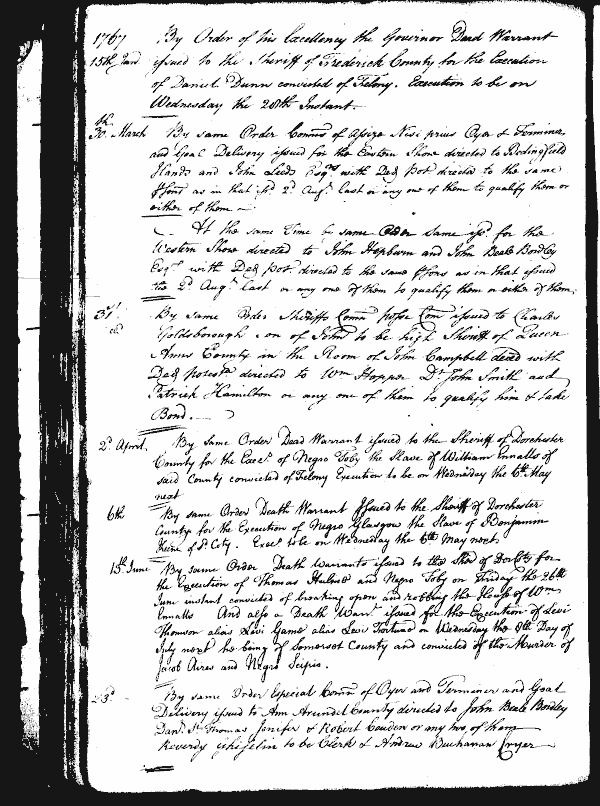 1767 By Order of his Excellency the Governor Dead Warrant
15th Jan issued to the Sheriff of Frederick County for the Execution
of Daniel Dunn convicted of Felony. Execution to be on
Wednesday the 28th Instant.
30th March By same Order Comns of Assize Nisi prius Oyer & Terminer
and Goal Delivery issued for the Eastern Shore directed to
Hands and John Leeds Esqrs with Ded. Pot. directed to the same
as in that 2d Augt last or any one of them to qualify them or
either of them
At the same Time by same Order same for the
Western Shore directed to John Hepburn and John Beale Bordley
Esqrs with Ded. Pot. directed to the same as in that issued
the 2d Augt last or any one of them to qualify them or either of them
31st By Same Order Sheriffs Comn issued to Charles
Goldsborough son of John to be high Sheriff of Queen
Anns County in the Room of John Campbell dead with
Ded potest. directed to Wm Hopper Dr John Smith and
Patrick Hamilton or any one of them to qualify him & take
Bond.
2d April. By same Order Dead Warrant issued to the Sheriff of Dorchester
County for the Execn of Negro Toby the Slave of William Ennalls of
said County convicted of Felony Execution to be on Wednesday the 6th May
next
6th By same Order Death Warrant Issued to the Sheriff of Dorchester
County for the Execution of Negro Glasgow the Slave of Benjamin
Keene of sd Coty. Execn to be on Wednesday the 6th May next
15th June By same Order Death Warrants issued to the Sher of for
the Execution of Thomas and Negro Toby on Friday the 26th
June instant convicted of breaking open and robbing the House of Wm
Ennalls And also a Death Warrt issued for the Execution of Levi
Thomson alias Levi Game alias Levi Fortune on Wednesday the 8th Day of
July next he being of Somerset County and convicted of the Murder of
Jacob Aires and Negro Scipio.
23d By same Order Especial Comn of Oyer and Terminer and Goal
Delivery issued to Ann Arundel County directed to John Beale Bordley
Danl St Thomas Jenifer & Robert Couden or any two of them
Reverdy Ghiselin to be Clerk & Andrew Buchanan Cryer